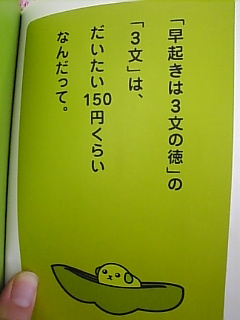 「早起きは3文の徳」の
「3文」は、
だいたい150円くらい
なんだって。